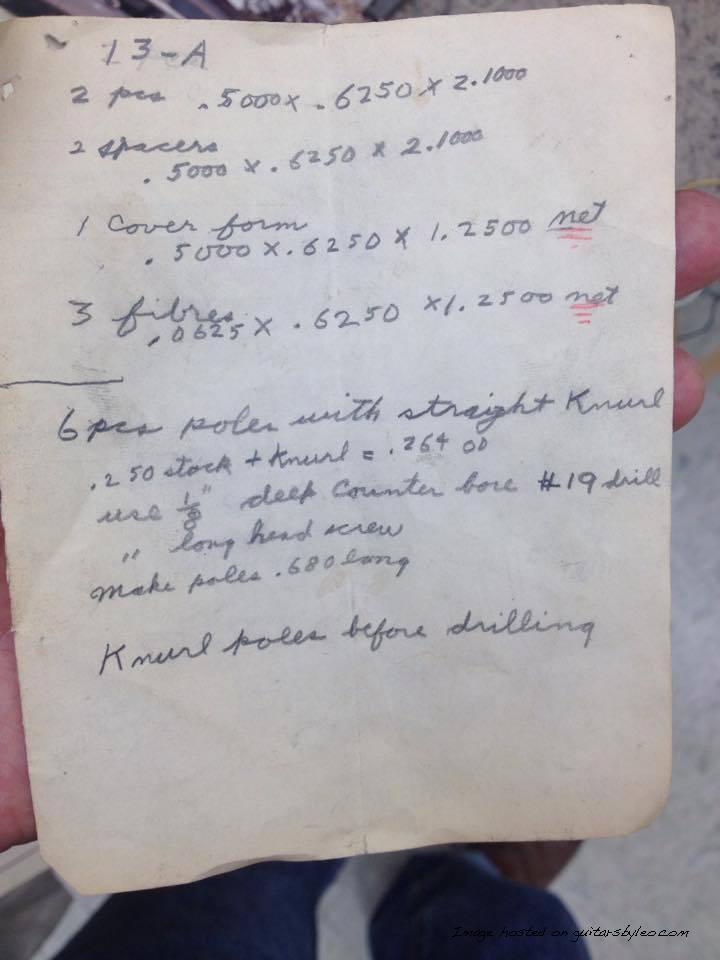 13-A
2 pcs .5000 x .6250 x 2.1000
2 spacers
.5000 x .6250 x 2.1000
1 Cover form
.5000 x .6250 x 1.2500 net
3 fibres
.0625 x .6250 x 1.2500 net
6 pcs poles with straight Knurl
.250 stock + Knurl = .264 OD
use 1/8" deep Counter bore #19 drill
" long head screw
Make poles .680 long
Knurl poles before drilling
Image hosted on guitarsbyleo.com